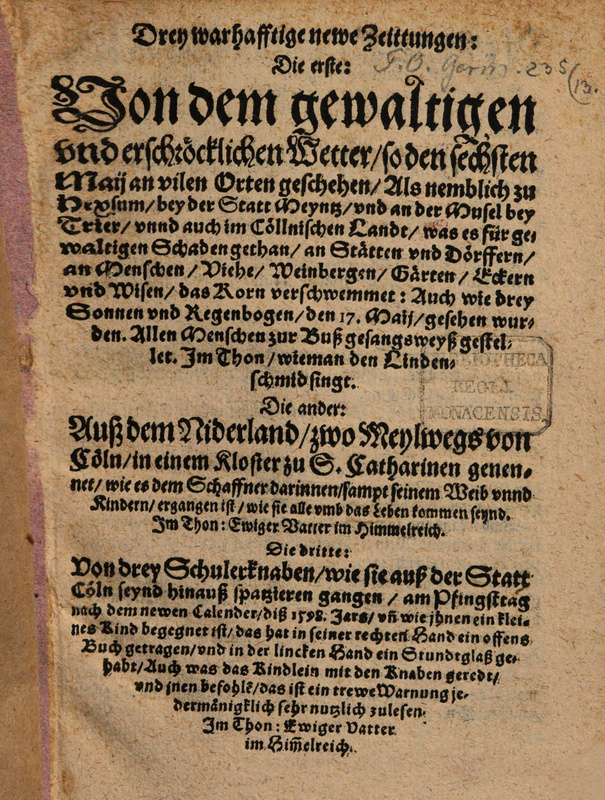 Drey warhafftige newe Zeittungen:
P.O. Germ. 235
(13.
Die erste:
Von dem gewaltigen
vnd erschröcklichen Wetter/ so den sechsten
Maij an vilen Orten geschehen/ Als nemblich zu
bey der Statt Meyntz/ vnd an der Musel bey
Trier/ vnnd auch im Cöllnischen Landt/ was es für ge⸗
waltigen Schaden gethan/ an Stätten vnd Dörffern/
an Menschen/ Viehe/ Weinbergen/ Gärten/ Eckern
vnd Wisen/ das Korn verschwemmet: Auch wie drey
Sonnen vnd Regenbogen/ den 17. Maij/ gesehen wur⸗
den. Allen Menschen zur Buß gesangsweyß gestel⸗
let. Im Thon/ wie man den Linden⸗
schmid singt.
BIBLIOTHECA
REGIA
MONACENSIS.
Die ander:
Auß dem Niderland/ zwo Meylwegs von
Cöln/ in einem Kloster zu S. Catharinen genen⸗
net/ wie es dem Schaffner darinnen/ sampt seinem Weib vnnd
Kindern/ ergangen ist/ wie sie alle vmb das Leben kommen seynd.
Im Thon: Ewiger Vatter im Himmelreich.
Die dritte:
Von drey Schulerknaben/ wie sie auß der Statt
Cöln seynd hinauß spatzieren gangen/ am Pfingsttag
nach dem newen Calender/ diß 1598. Jars/ vñ wie jhnen ein klei⸗
nes Kind begegnet ist/ das hat in seiner rechten Hand ein offens
Buch getragen/ vnd in der lincken Hand ein Stundtglaß ge⸗
habt/ Auch was das Kindlein mit den Knaben geredt/
vnd jnen befohlē/ das ist ein trewe Warnung je⸗
dermänigklich sehr nutzlich zu lesen.
Im Thon: Ewiger Vatter
im Him̄elreich.